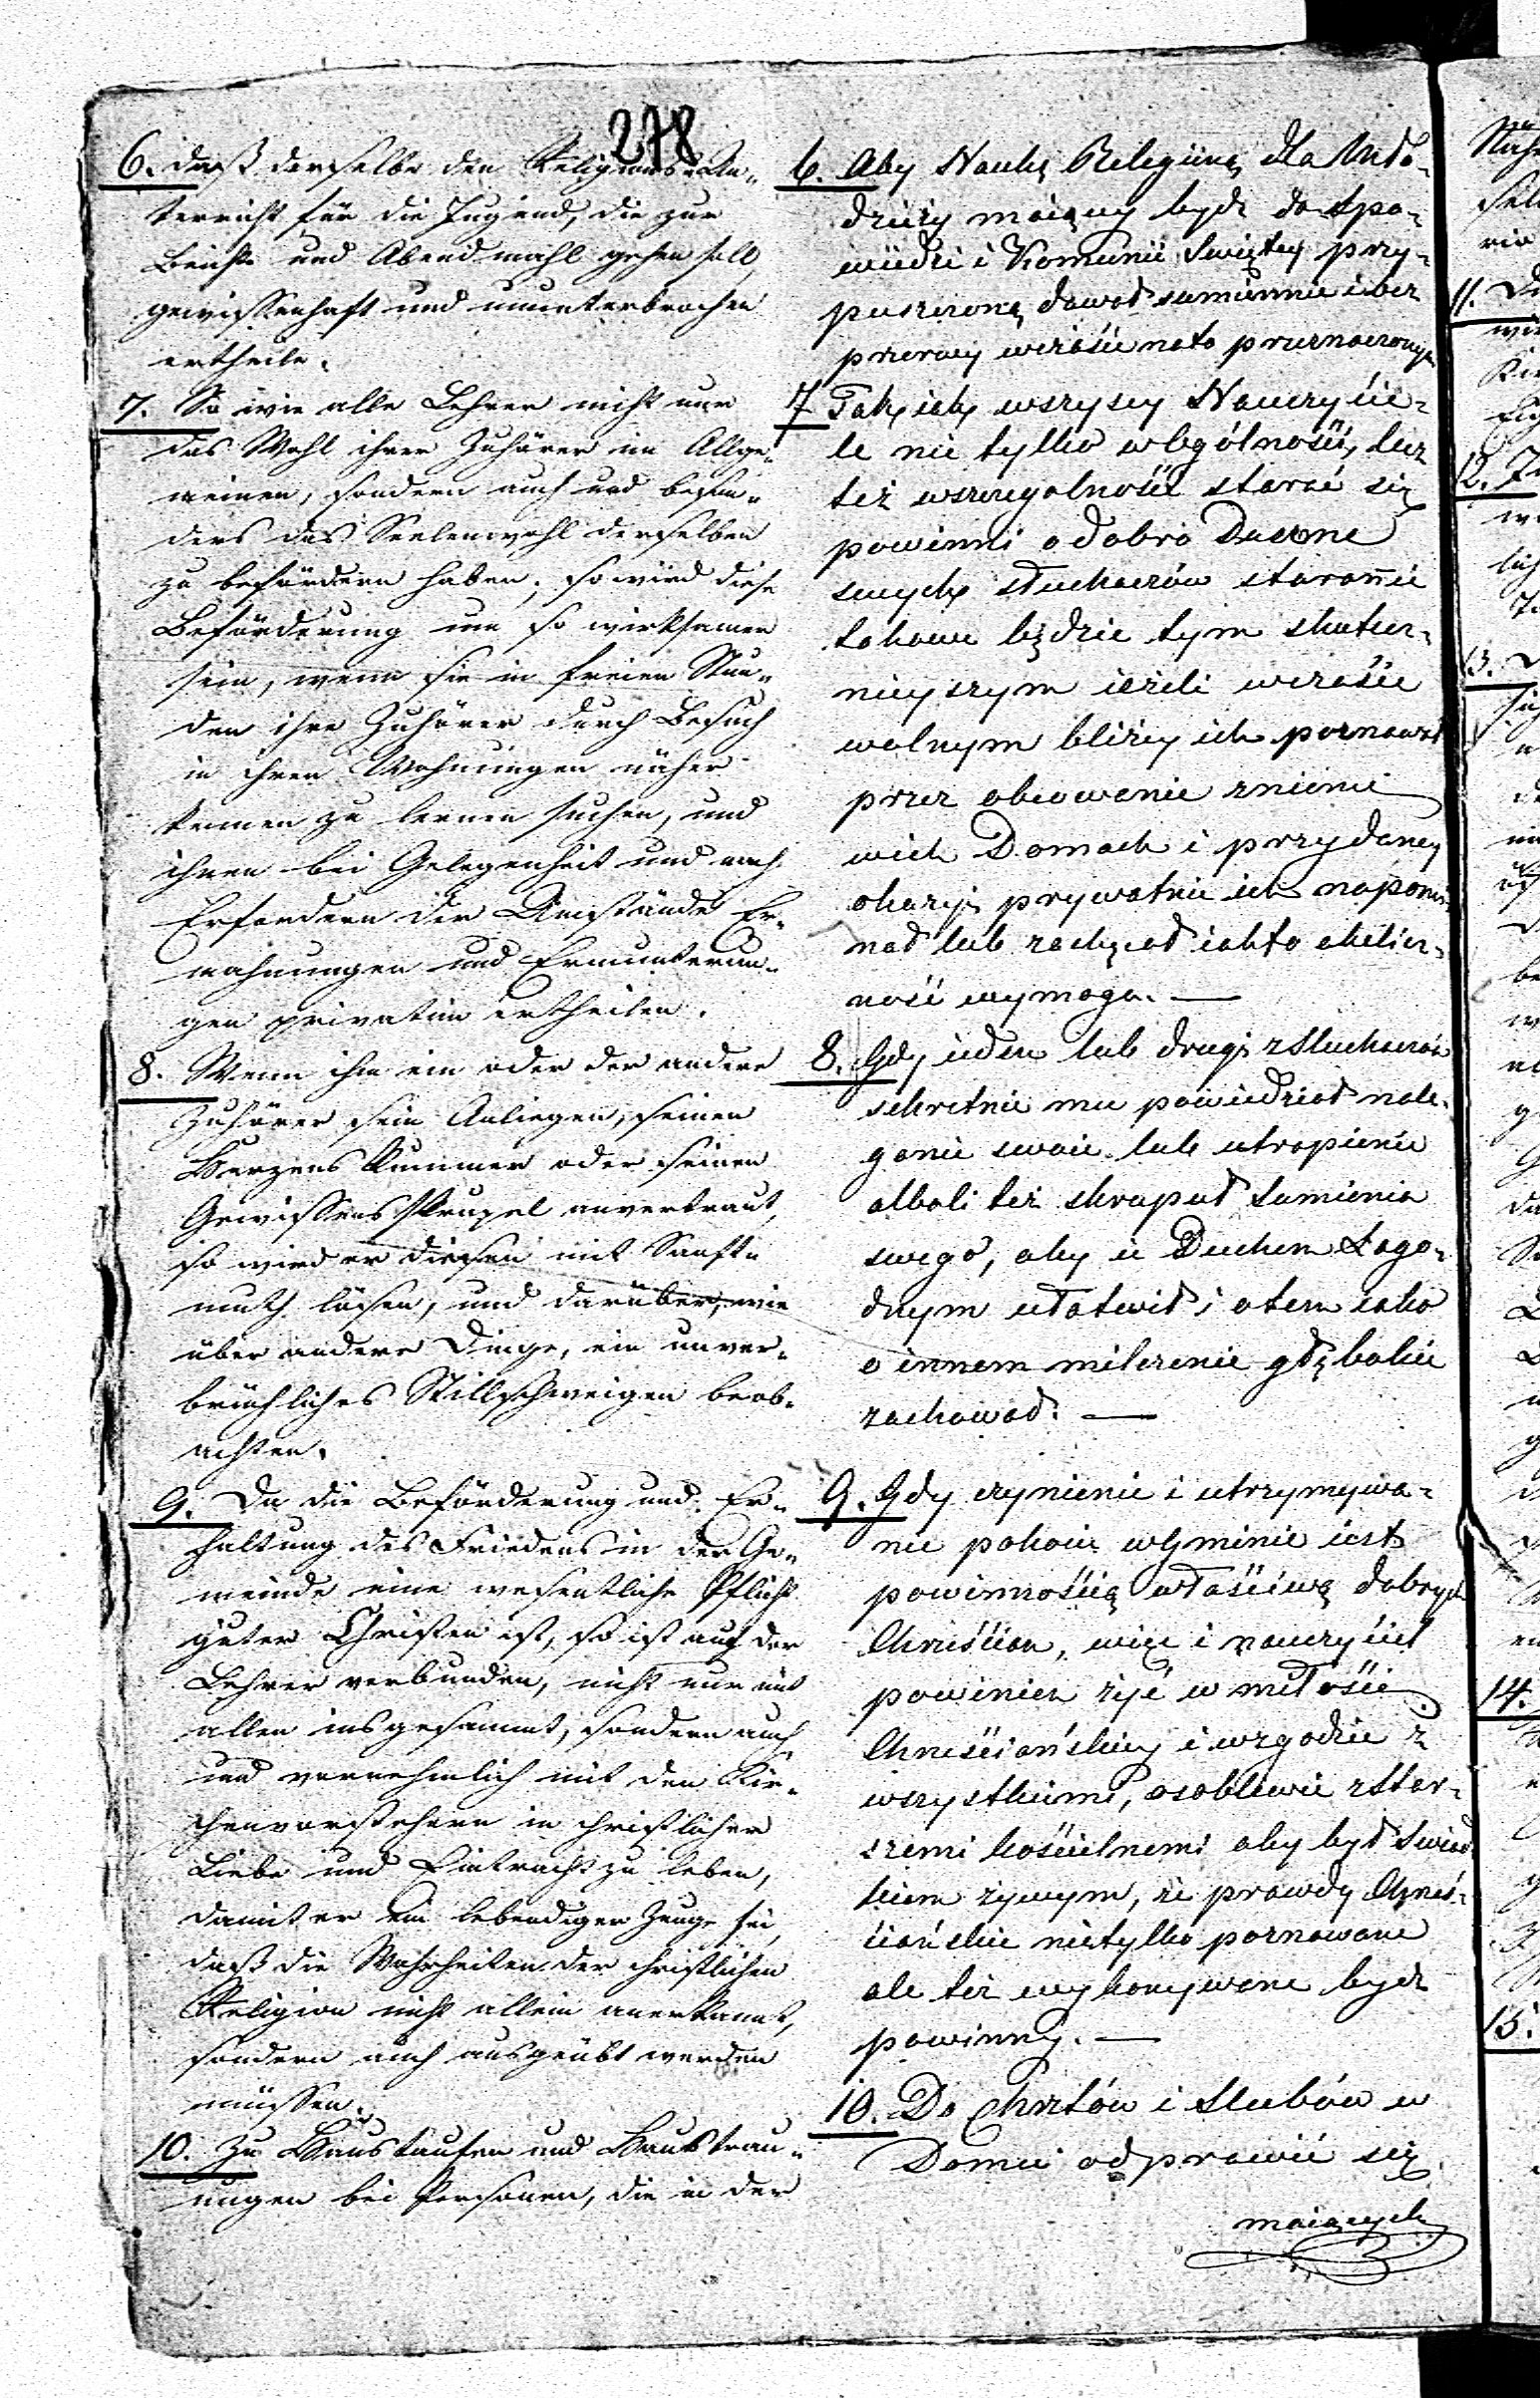 278
6. daß derselbe den Religions-Un-
terricht für die Jugend, die zur
Beichte und Abendmahl gehen soll,
gewissenhaft und ununterbrochen
ertheile.
7. So wie alle Lehrer nicht nur
das Wohl ihrer Zuhörer im Allge-
meinen, sondern auch und beson-
ders das Seelenwohl derselben
zu befördern haben; so wird diese
Beförderung um so wirksamer
sein, wenn sie in freien Stun-
den ihre Zuhörer durch Besuch
in ihren Wohnungen näher
kennen zu lernen suchen, und
ihnen bei Gelegenheit und nach
Erfordern der Umstände Er-
mahnungen und Ermunterun-
gen privatim ertheilen.
8. Wenn ihm ein oder der andere
Zuhörer sein Anliegen, seinen
Herzens Kummer oder seinen
Gewissens Skrupel anvertraut,
so wird er diesen mit Sanft-
muth lösen, und darüber, wie
über andere Dinge, ein unver-
brüchliches Stillschweigen beob-
achten.
9. Da die Beförderung und Er-
haltung des Friedens in der Ge-
meinde eine wesentliche Pflicht
guter Christen ist, so ist auch der
Lehrer verbunden, nicht nur mit
allen insgesammt, sondern auch
und vornehmlich mit den Kir-
chenvorstehern in christlicher
Liebe und Eintracht zu leben,
damit er ein lebendiger Zeuge sei,
daß die Wahrheiten der christlichen
Religion nicht allein anerkannt,
sondern auch ausgeübt werden
müssen.
10. Zu Haustaufen und Haustrau-
ungen bei Personen, die in der
6. Aby Naukę Religiiną dla Mło-
dzieży maiącey bydz do Spo-
wiedzi i Komunii Swiętey przy-
puszczoną dawał sumiennie i bez
przerwy w czasie na to przeznaczonym
7 Tak iak wszyscy Nauczycie-
le nie tylko w Ogólności, lecz
też w szczególności starać się
powinni o dobro Duszne
swych słuchaczów staranie
takowe będzie tym skutecz-
nieyszym ieżeli w czasie
wolnym bliżey ich poznawać
przez obcowanie z niemi
w ich Domach i przy daney
okazyi prywatnie ich napomi-
nał lub zachęcał iak to okolicz-
ność wymaga. —
8. Gdy ieden lub drugi z Słuchaczów
sekretnie mu powiedział nale-
ganie swoie lub utrapienie
alboli też skrupuł Sumienia
swego, aby ie Duchem Łago-
dnym ułatwił i o tem iako
o innem milczenie głębokie
zachował. —
9. Gdy czynienie i utrzymywa-
nie pokoiu w Gminie iest
powinnością właściwą dobrych
Chrześcian, więc i nauczyciel
powinien żyć w miłości
Chrześciańskiey i w zgodzie z
wszystkiemi, osobliwie z Star-
szemi kościelnemi aby był Swiad-
kiem żywym, że prawdy Chrześ-
ciańskie nie tylko poznawane
ale też wykonywane bydz
powinny. —
10. Do Chrztów i Slubów w
Domu odprawić się
maiących